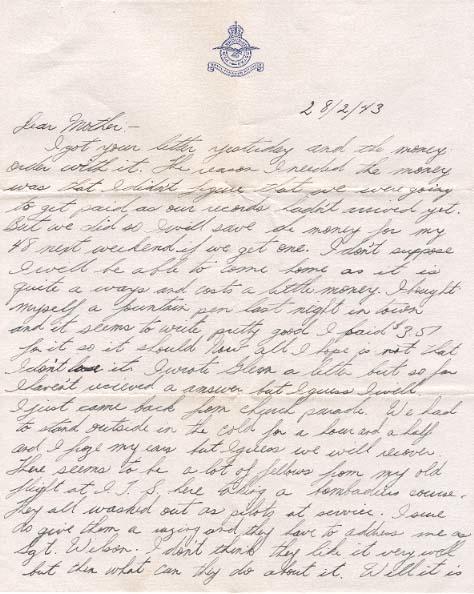 28/2/43
Dear Mother:-
I got your letter yesterday and the money
order with it. The reason I needed the money
was that I didn't figure that we were going
to get paid as our records hadn't arrived yet.
But we did so I will save the money for my
48 next weekend if we get one. I don't suppose
I will be able to come home as it is
quite a ways and costs a little money. I bought
myself a fountain pen last night in town
and it seems to write pretty good I paid $3.57
for it so it should. Now all I hope is not that
I don't lose it. I wrote Glenn a letter but so far
I haven't recieved a answer but I guess I will.
I just came back from church parade. We had
to stand outside in the cold for a hour and a half
and I froze my ears but I guess we will recover.
There seems to be a lot of fellows from my old
flight at I.T.S. here taking a bombadiers course.
They all washed out as pilots at service. I sure
do give them a razzing and they have to address me as
Sgt. Wilson. I don't think they like it very well
but then what can they do about it. Well it is